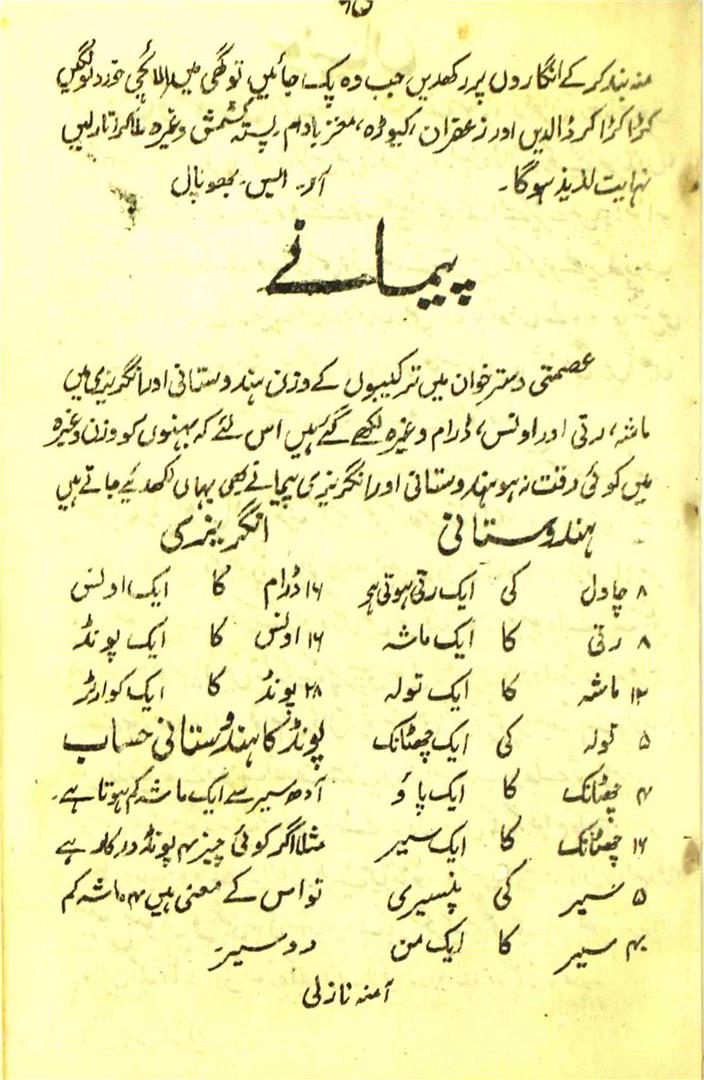 منہ بند کر کے انگاروں پر رکھدیں جب وہ پک جائیں تو گھی میں الائچی خورد لونگیں
کڑا کڑا کر ڈالدیں اور زعفران، کیوڑہ، مغز بادام، پستہ کشمش وغیرہ ملا کر اتار لیں
نہایت لذیذ ہوگا۔ آر۔ ایس۔ بھوپال
پیمانے
عصمتی دسترخوان میں ترکیبوں کے وزن ہندوستانی اور انگریزی میں
ماشہ، رتی اور اونس، ڈرام وغیرہ لکھے گئے ہیں اس لئے کہ بہنوں کو وزن وغیرہ
میں کوئی دقت نہ ہو ہندوستانی اور انگریزی پیمانے بھی یہاں لکھدیئے جاتے ہیں
ہندوستانی
۸ چاول کی ایک رتی ہوتی ہو
۸ رتی کا ایک ماشہ
۱۲ ماشہ کا ایک تولہ
۵ تولہ کی ایک چھٹانک
۴ چھٹانک کا ایک پاؤ
۱۶ چھٹانک کا ایک سیر
۵ سیر کی پنسیری
۴۰ سیر کا ایک من
انگریزی
۱۶ ڈرام کا ایک اونس
۱۶ اونس کا ایک پونڈ
۲۸ پونڈ کا ایک کوارٹر
پونڈ کا ہندوستانی حساب
آدھ سیر سے ایک ماشہ کم ہوتا ہے۔
مثلاً اگر کوئی چیز ۴ پونڈ درکار ہے
تو اس کے معنی ہیں ۴ ماشہ کم
دو سیر۔
آمنہ نازلی